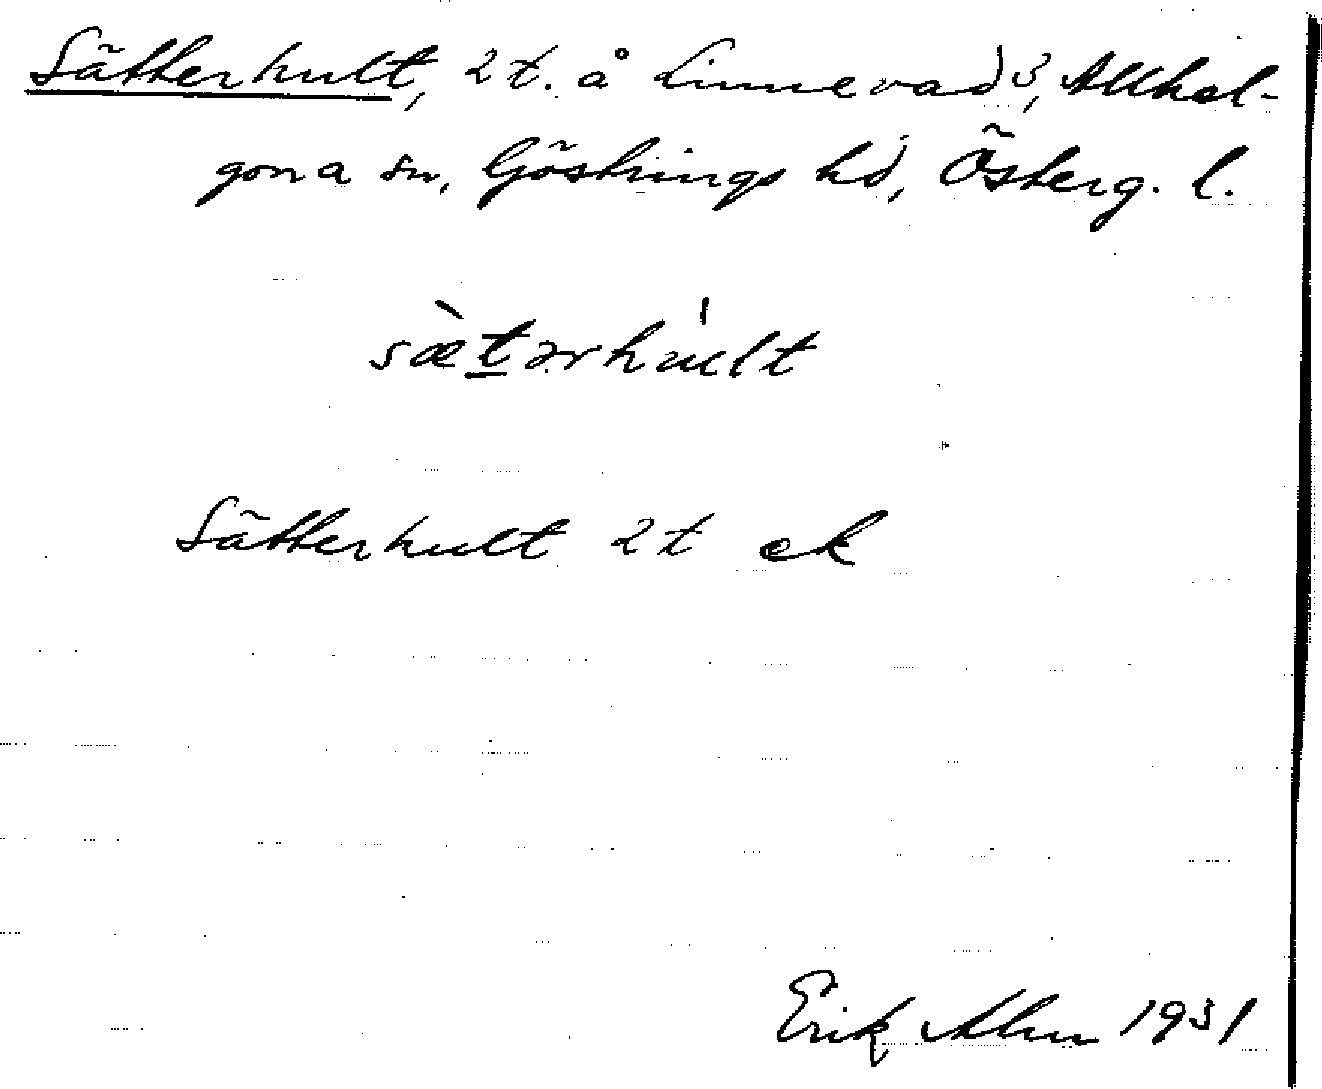 Sätterhult, 2 t. å Linnevad 3, Allhel-
gona sn, Göstrings hd, Österg. l.
sæ̀tərhu̇lt
Sätterhult 2 t ek
Erik Alm 1931